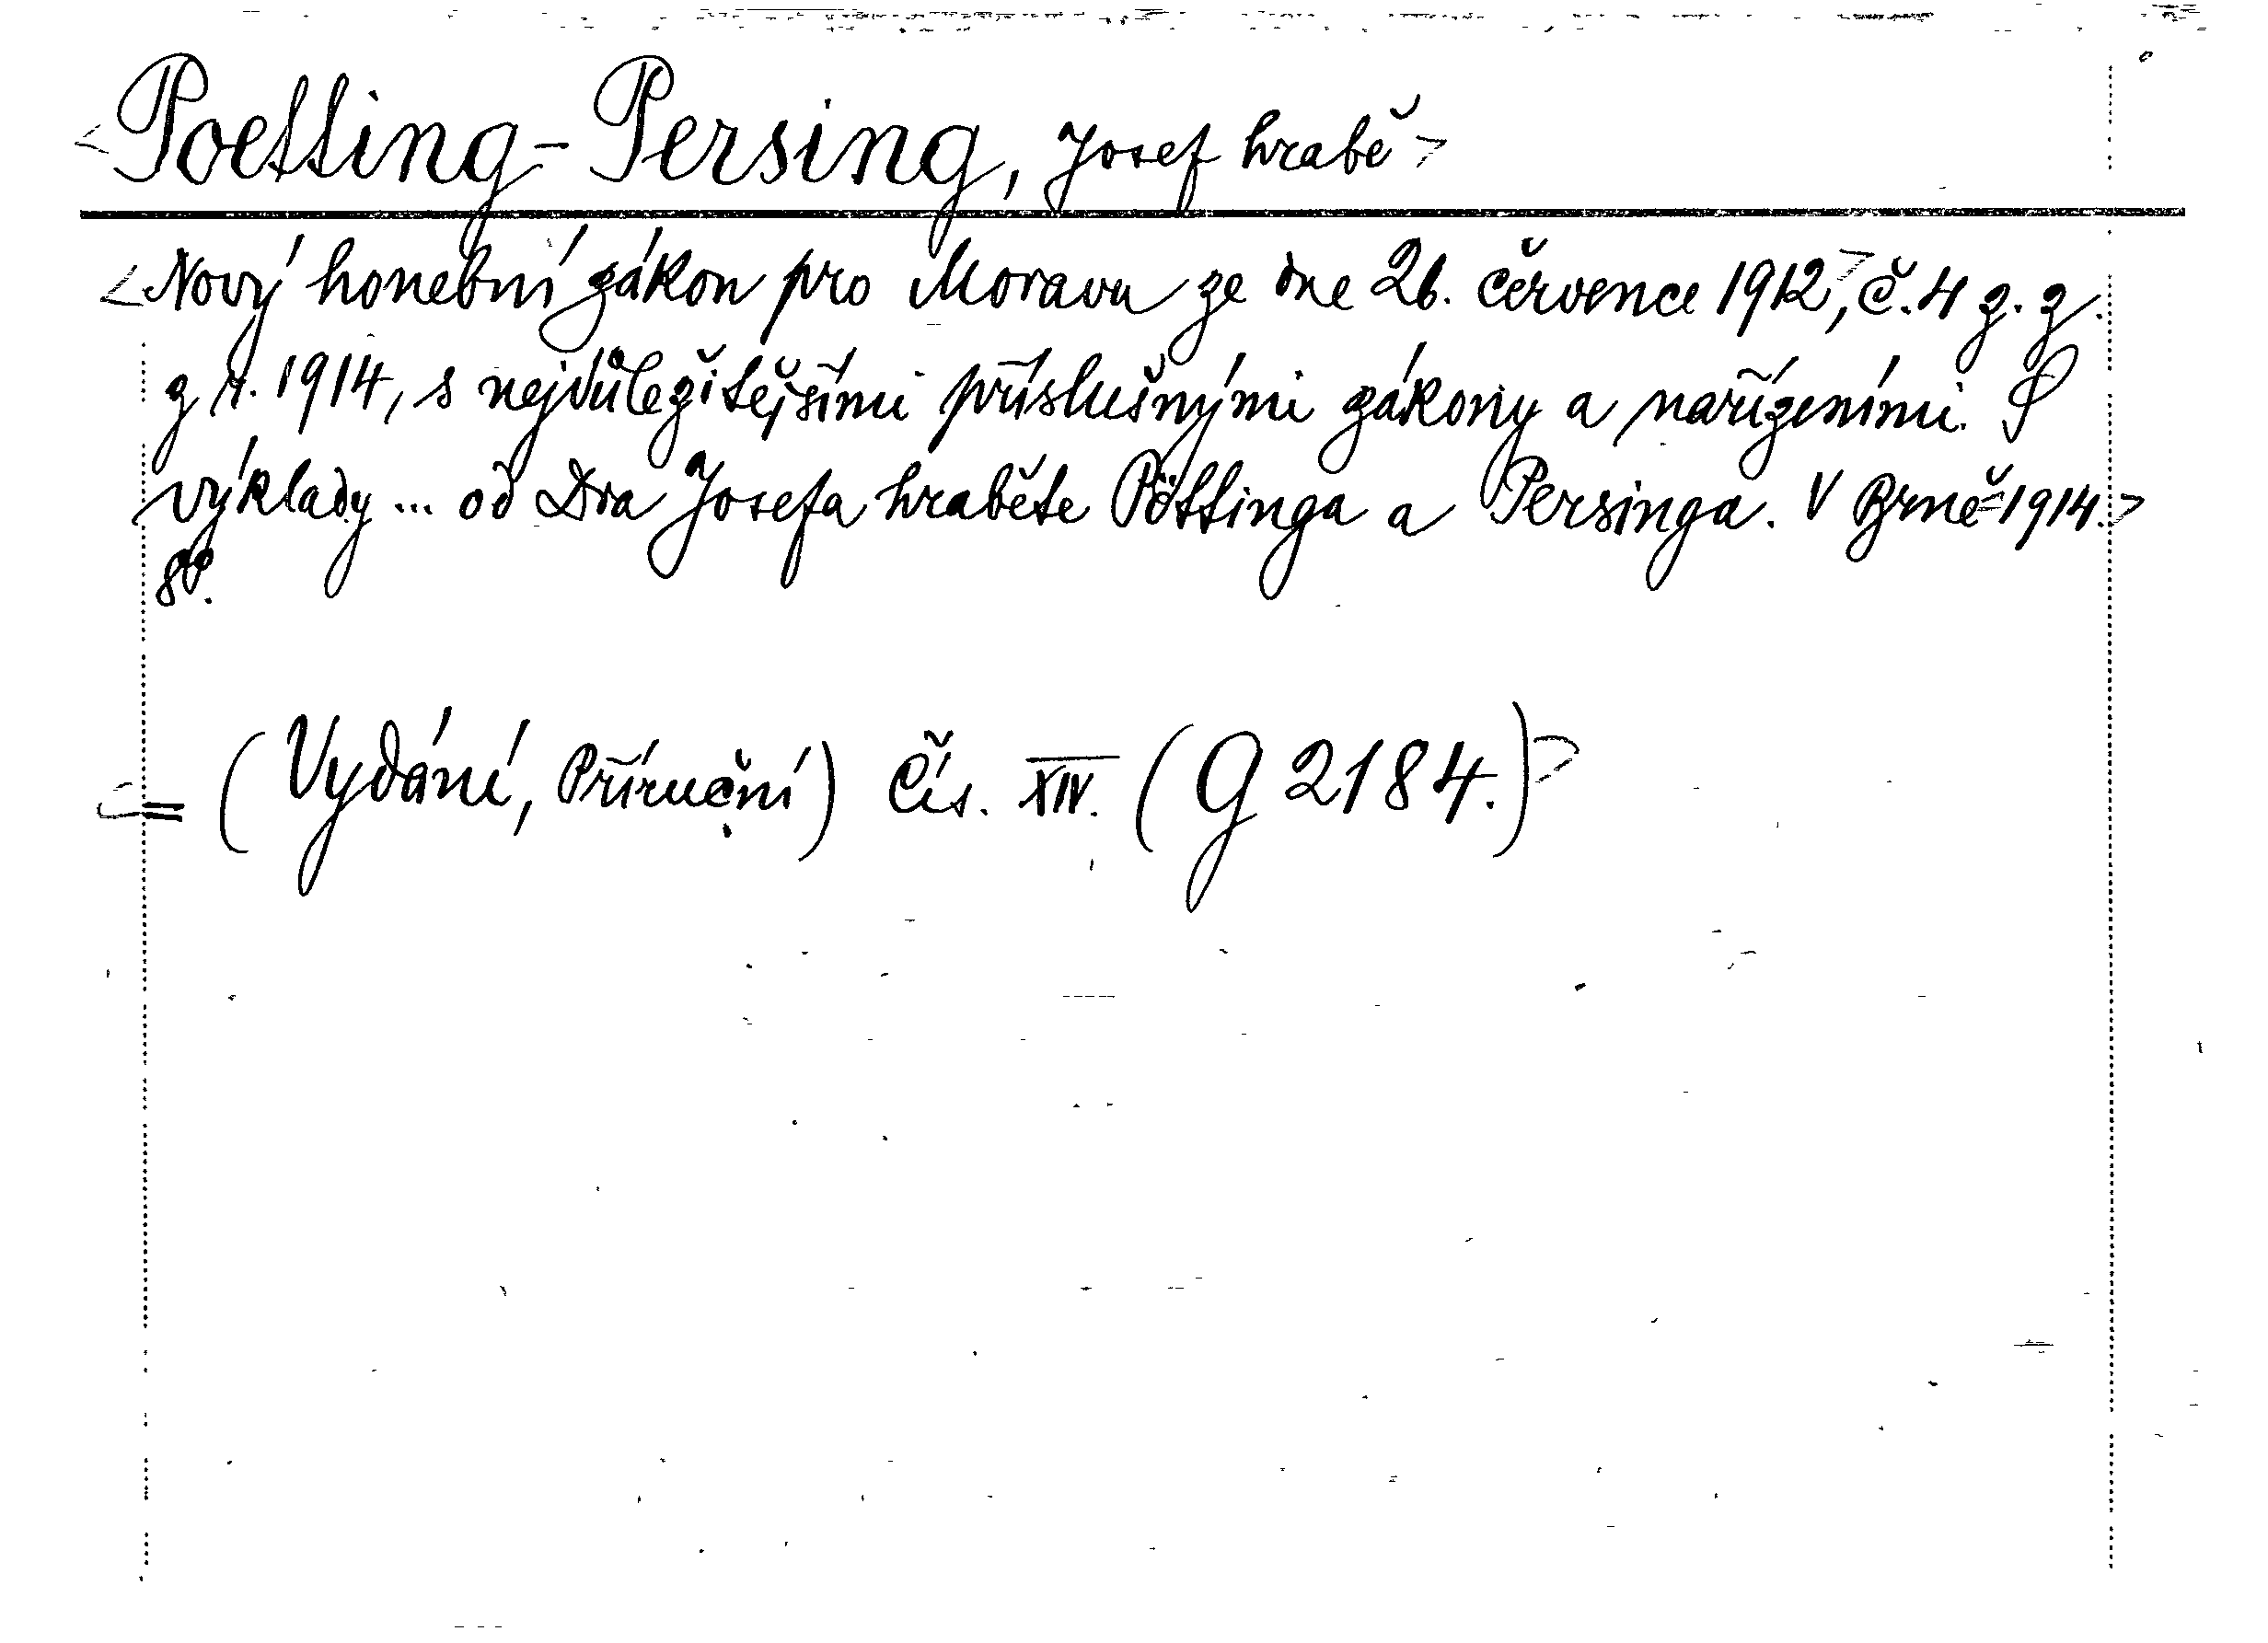 <Poetting-Persing, Josef hrabě>
<Nový honební zákon pro Moravu ze dne 26. července 1912>, č. 4 z. z.
z r. 1914, s nejdůležitějšími příslušnými zákony a nařízeními. S
výklady ... od Dra Josefa hraběte Pöttinga a Persinga. V Brně 1914.>
8°.
<= (Vydání, Příruční) Čís. XIV. (G 2184.)>